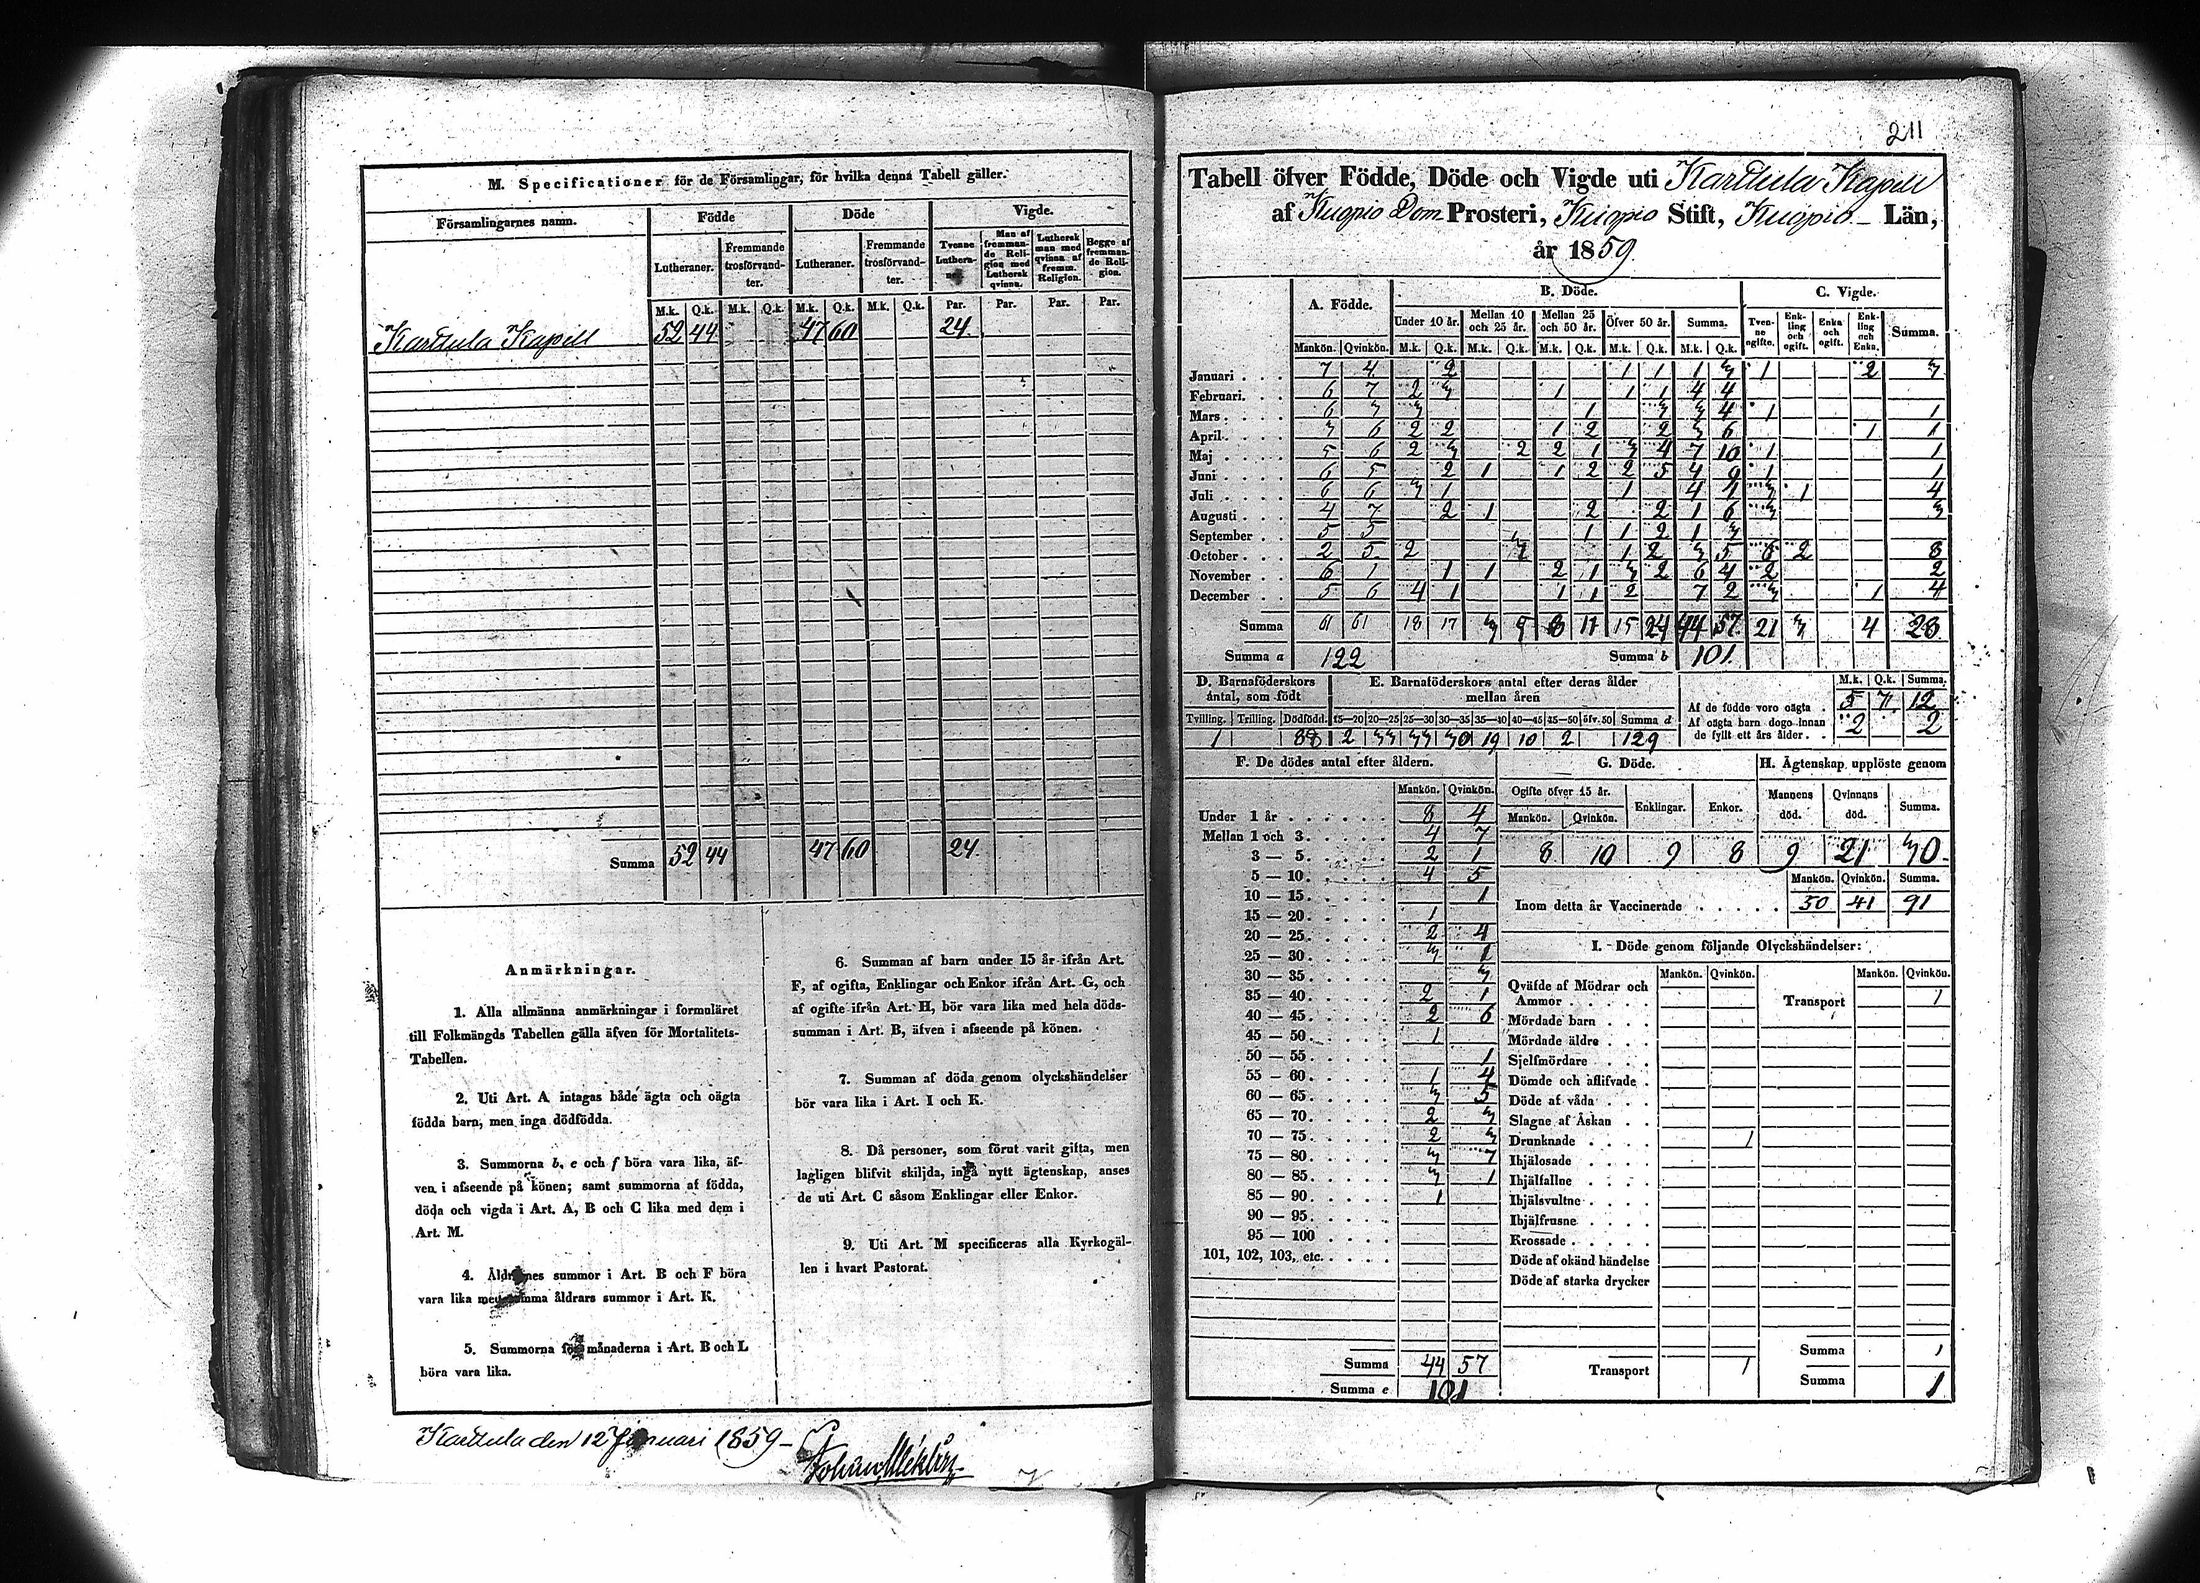 M. Specificationer för de Församlingar, för hvilka denna Tabell gäller.
Församlingarnes namn. Födde Döde Vigde.
Lutheraner. Fremmande trosförvandter. Lutheraner. Fremmande trosförvandter. Tvenne Man af fremmande Religion med Luthersk qvinna. Luthersk man med qvinna af fremm. Religion. Begge af fremmande Religion.
M.k. Q.k. M.k. Q.k. M.k. Q.k. M.k. Q.k. Par. Par. Par. Par.
Karttula Kapell 52 44 47 60 24.
Summa 52 44 47 60 24.
Anmärkningar.
1. Alla allmänna anmärkningar i formuläret
till Folkmängds Tabellen gälla äfven för Mortalitets-
Tabellen.
2. Uti Art. A intagas både ägta och oägta
födda barn, men inga dödfödda.
3. Summorna b, e och f böra vara lika, äf-
ven i afseende på könen; samt summorna af födda,
döda och vigda i Art. A, B och C lika med dem i
Art. M.
4. Åldrarnes summor i Art. B och F böra
vara lika med samma åldrars summor i Art. K.
5. Summorna för månaderna i Art. B och L
böra vara lika.
6. Summan af barn under 15 år ifrån Art.
F, af ogifta, Enklingar och Enkor ifrån Art. G, och
af ogifte ifrån Art. H, bör vara lika med hela döds-
summan i Art. B, äfven i afseende på könen.
7. Summan af döda genom olyckshändelser
bör vara lika i Art. I och K.
8. Då personer, som förut varit gifta, men
lagligen blifvit skiljda, ingå nytt ägtenskap, anses
de uti Art. C såsom Enklingar eller Enkor.
9. Uti Art. M specificeras alla Kyrkogäl-
len i hvart Pastorat.
Karttula den 12 Januari 1859
211
Tabell öfver Födde, Döde och Vigde uti Karttula Kapell
af Kuopio Dom Prosteri, Kuopio Stift, Kuopio Län,
år 1859.
A. Födde. B. Döde. C. Vigde.
Under 10 år. Mellan 10 och 25 år. Mellan 25 och 50 år. Öfver 50 år. Summa. Tvenne ogifte. Enkling och ogift. Enka och ogift. Enkling och Enka. Summa.
Mankön. Qvinkön. M.k. Q.k. M.k. Q.k. M.k. Q.k. M.k. Q.k. M.k. Q.k.
Januari 7 4 2 1 1 1 3 1 2 3
Februari. 6 7 2 3 1 1 1 4 4
Mars 6 3 3 1 3 3 4 1 1
April 3 6 2 2 1 2 2 3 6 1 1
Maj 5 6 2 3 2 2 1 3 4 7 10 1 1
Juni 6 5 2 1 1 2 2 5 4 9 1 1
Juli 6 6 3 1 1 4 1 3 1 4
Augusti 4 7 2 1 2 2 1 6 3 3
September 5 5 1 1 2 1 3
October 2 5 2 1 2 3 5 6 2 8
November 6 1 1 1 2 1 3 2 6 4 2 2
December 5 6 4 1 1 1 2 7 2 3 1 4
Summa 61 61 18 17 3 5 8 11 15 24 44 57 21 3 4 28
Summa a 122 Summa b 101.
D. Barnaföderskors antal, som födt E. Barnaföderskors antal efter deras ålder mellan åren
M.k. Q.k. Summa.
Af de födde voro oägta 5 7 12
Af oägta barn dogo innan de fyllt ett års ålder 2 2
Tvilling. Trilling. Dödfödd. 15—20 20—25 25—30 30—35 35—40 40—45 45—50 öfv. 50 Summa d
1 2 33 33 30 19 10 2 129
F. De dödes antal efter åldern.
Mankön. Qvinkön.
Under 1 år 8 4
Mellan 1 och 3 4 7
3 — 5 2 1
5 — 10 4 5
10 — 15 1
15 — 20 1
20 — 25 2 4
25 — 30 3 1
30 — 35 3
35 — 40 2 1
40 — 45 2 6
45 — 50 1
50 — 55 1
55 — 60 1 4
60 — 65 3 5
65 — 70 2 3
70 — 75 2 3
75 — 80 3 7
80 — 85 3 1
85 — 90 1
90 — 95
95 — 100
101, 102, 103, etc.
Summa 44 57
Summa e 101
G. Döde. H. Ägtenskap upplöste genom
Ogifte öfver 15 år. Enklingar. Enkor. Mannens död. Qvinnans död. Summa.
Mankön. Qvinkön.
8 10 9 8 9 21 30
Mankön. Qvinkön. Summa.
Inom detta år Vaccinerade 50 41 91
I. Döde genom följande Olyckshändelser:
Mankön. Qvinkön. Mankön. Qvinkön.
Qväfde af Mödrar och Ammor Transport 1
Mördade barn
Mördade äldre
Sjelfmördare
Dömde och aflifvade
Döde af våda
Slagne af Åskan
Drunknade 1
Ihjälosade
Ihjälfallne
Ihjälsvultne
Ihjälfrusne
Krossade
Döde af okänd händelse
Döde af starka drycker
Summa 1
Transport 1 Summa 1